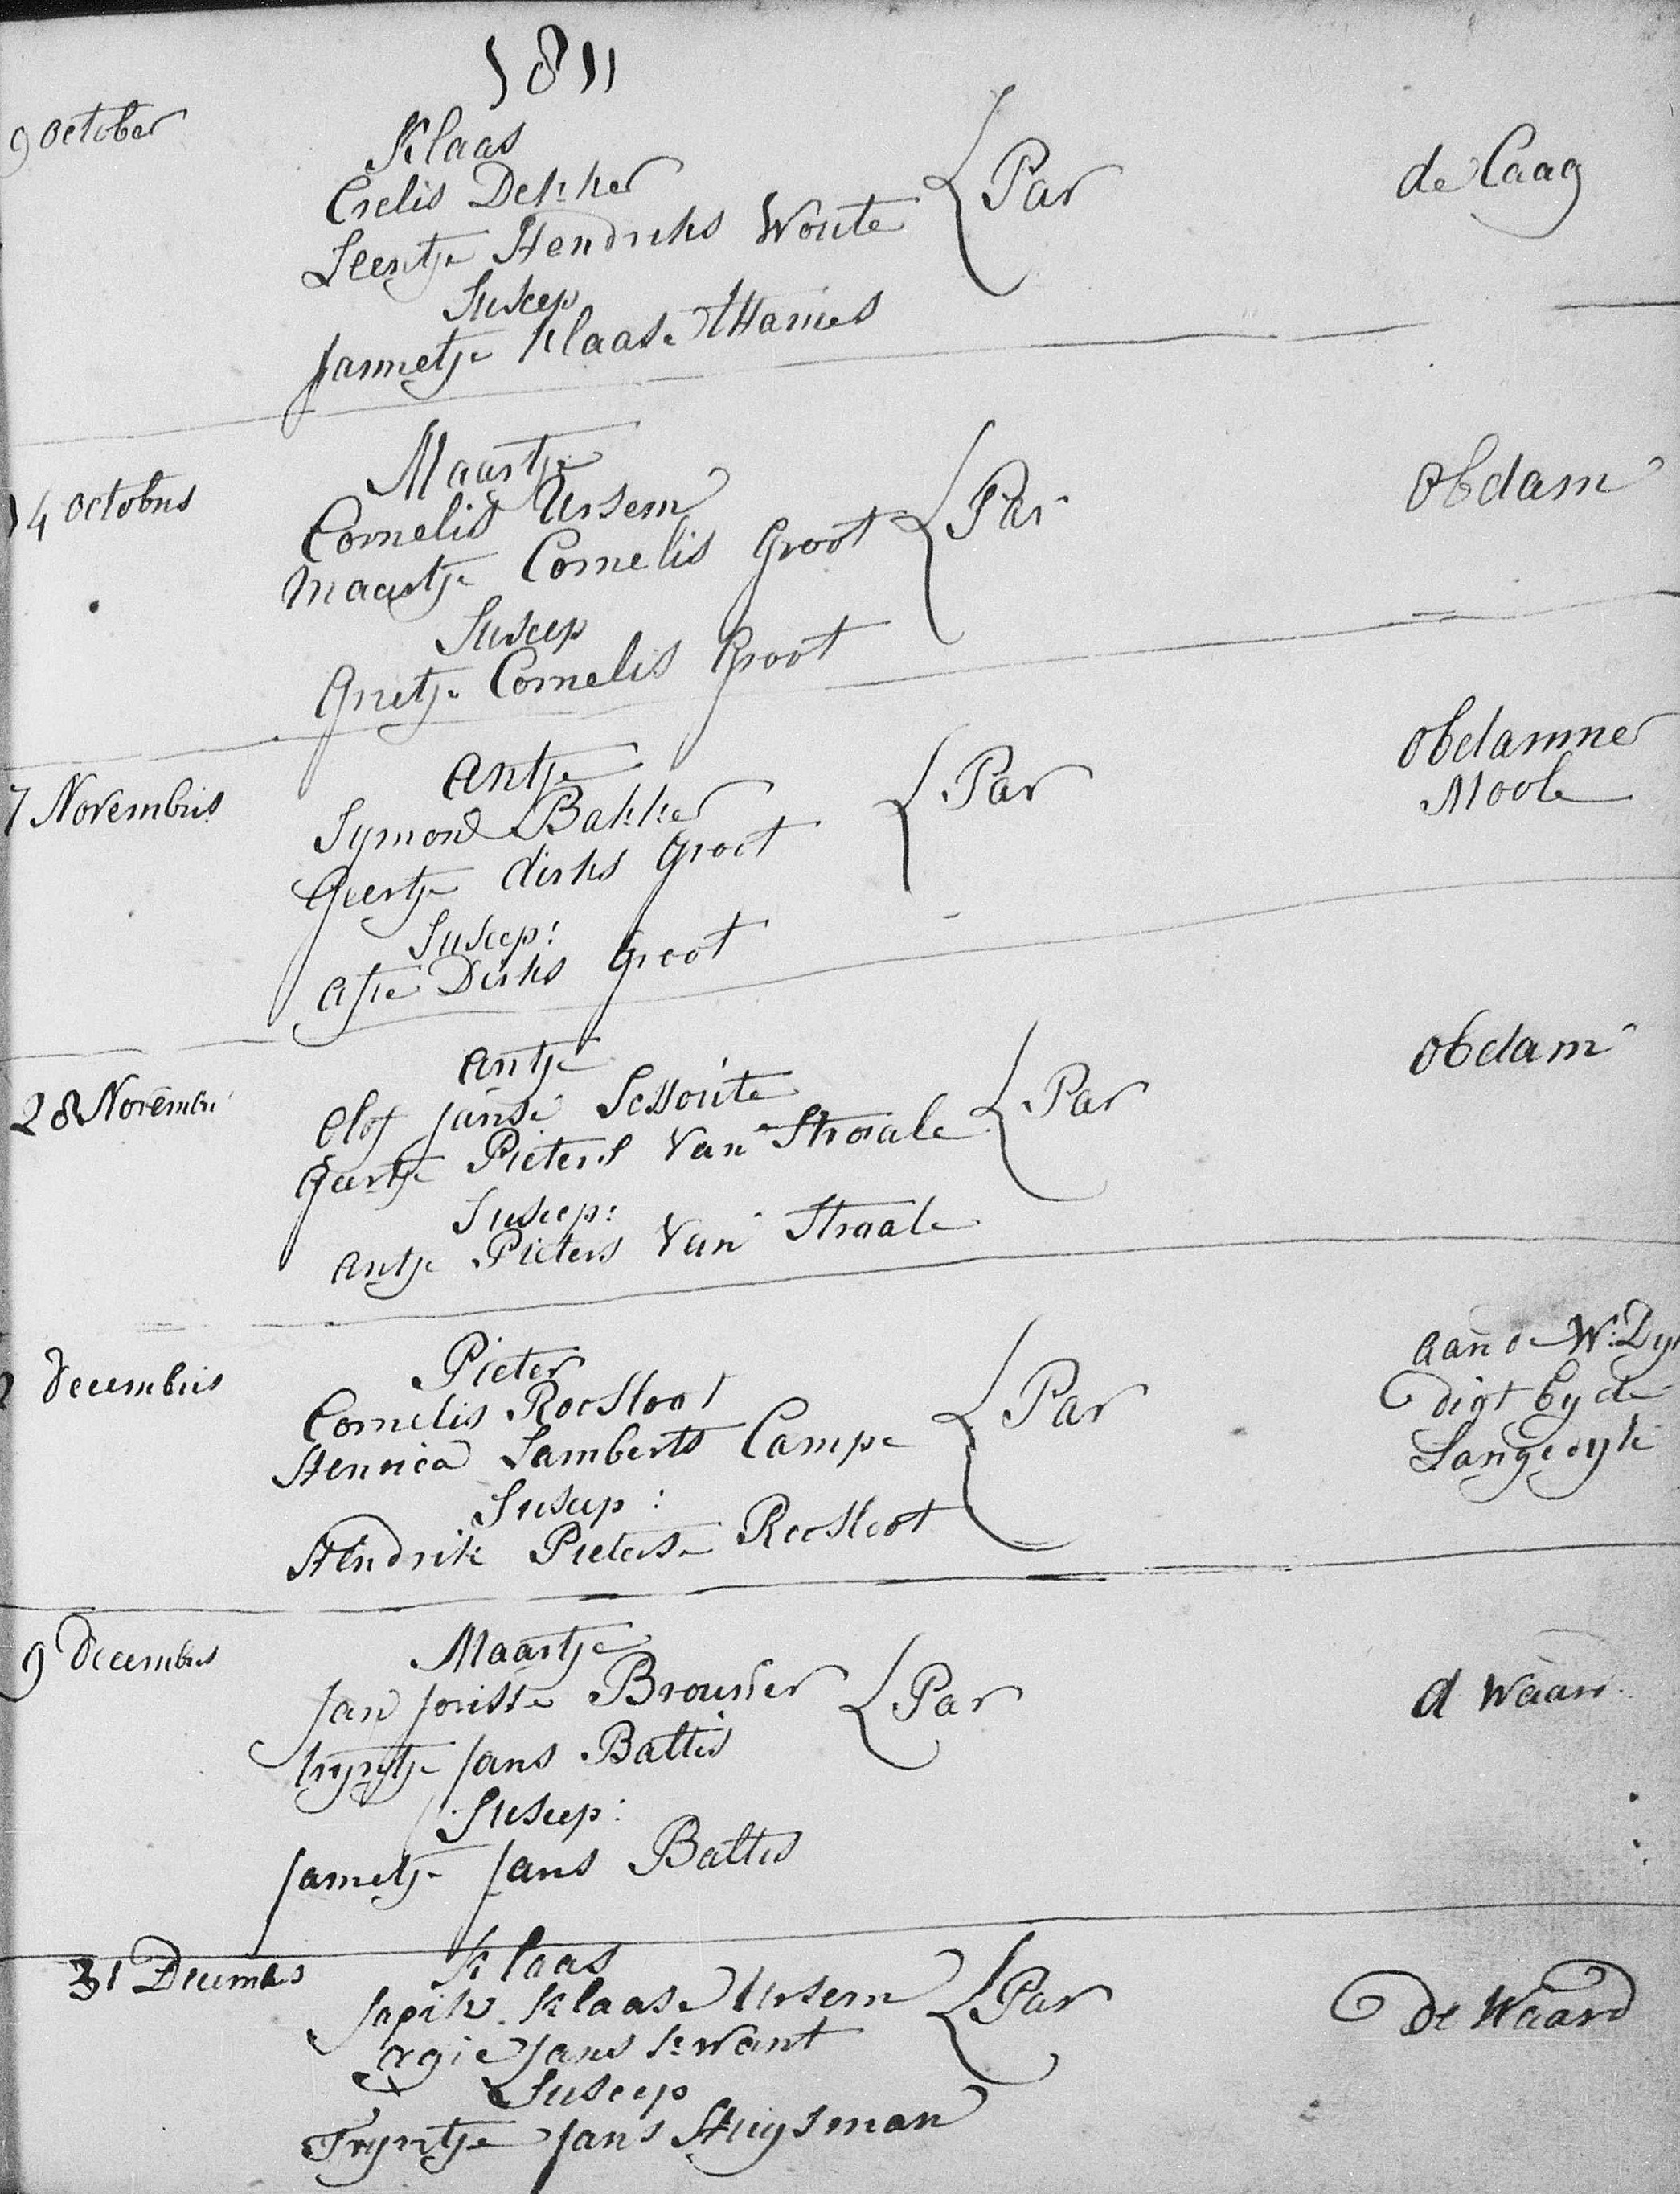 1811
9 october
Klaas
Crelis Dekker { Par
de Caag
Leentje Hendriks Woute
Suscep
Jannetje Klaase Hames
14 octobris
Maartje
Cornelis Ursem { Par
obdam
Maartje Cornelis Groot
Suscep
Grietje Cornelis Groot
7 Novembris
Antje
Symon Bakker { Par
obdammer
Moole
Geertje dirks Groot
Suscep:
Afie Dirks Groot
28 Novembri
Antje
Olof Janse { Par
obdam
Geertje Pieters Van Straale
Suscep:
Antje Pieters Van Straale
decembris
Pieter
Cornelis Roosloot { Par
aan de W: Dyk
digt by de
Langedyk
Hennica Lamberts Campe
Suscep:
Hendrik Pieterse Roosloot
9 decembris
Maartje
Jan Jorisse Brouwer { Par
d Waard
tryntje Jans Battes
Suscep:
Jannetje Jans Battes
31 Decembris
Klaas
Japik Klaase Ursem { Par
de Waard
Jans kwant
Suscep
Tryntje Jans Huysman